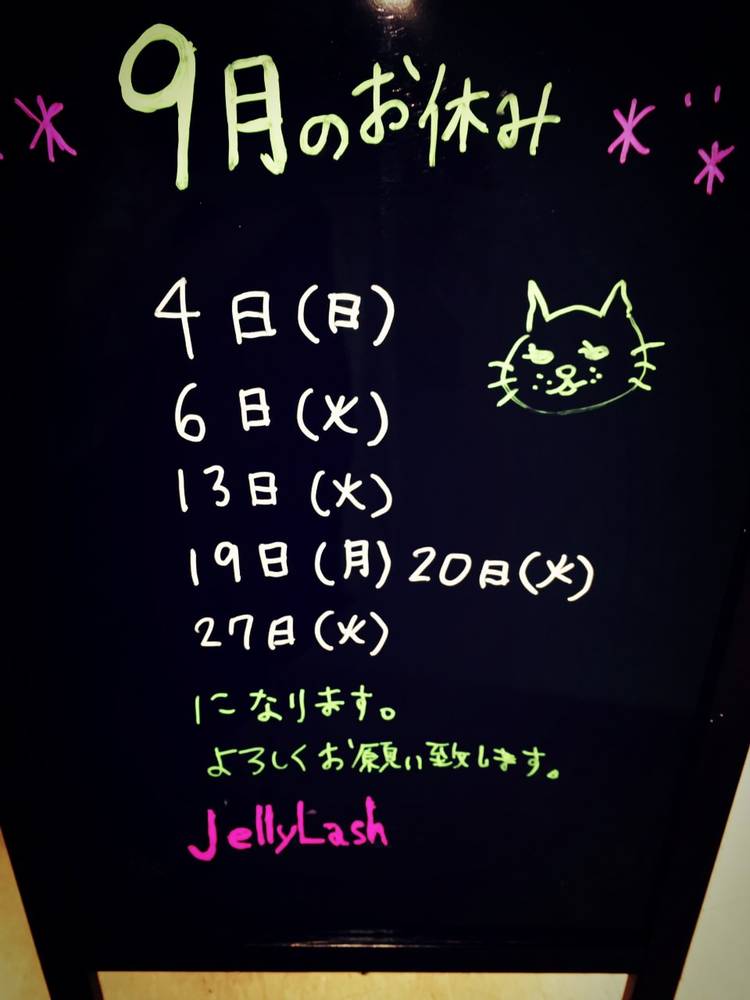 9月のお休み
4日(日)
6日(火)
13日(火)
19日(月) 20日(火)
27日(火)
になります。
よろしくお願い致します。
JellyLash